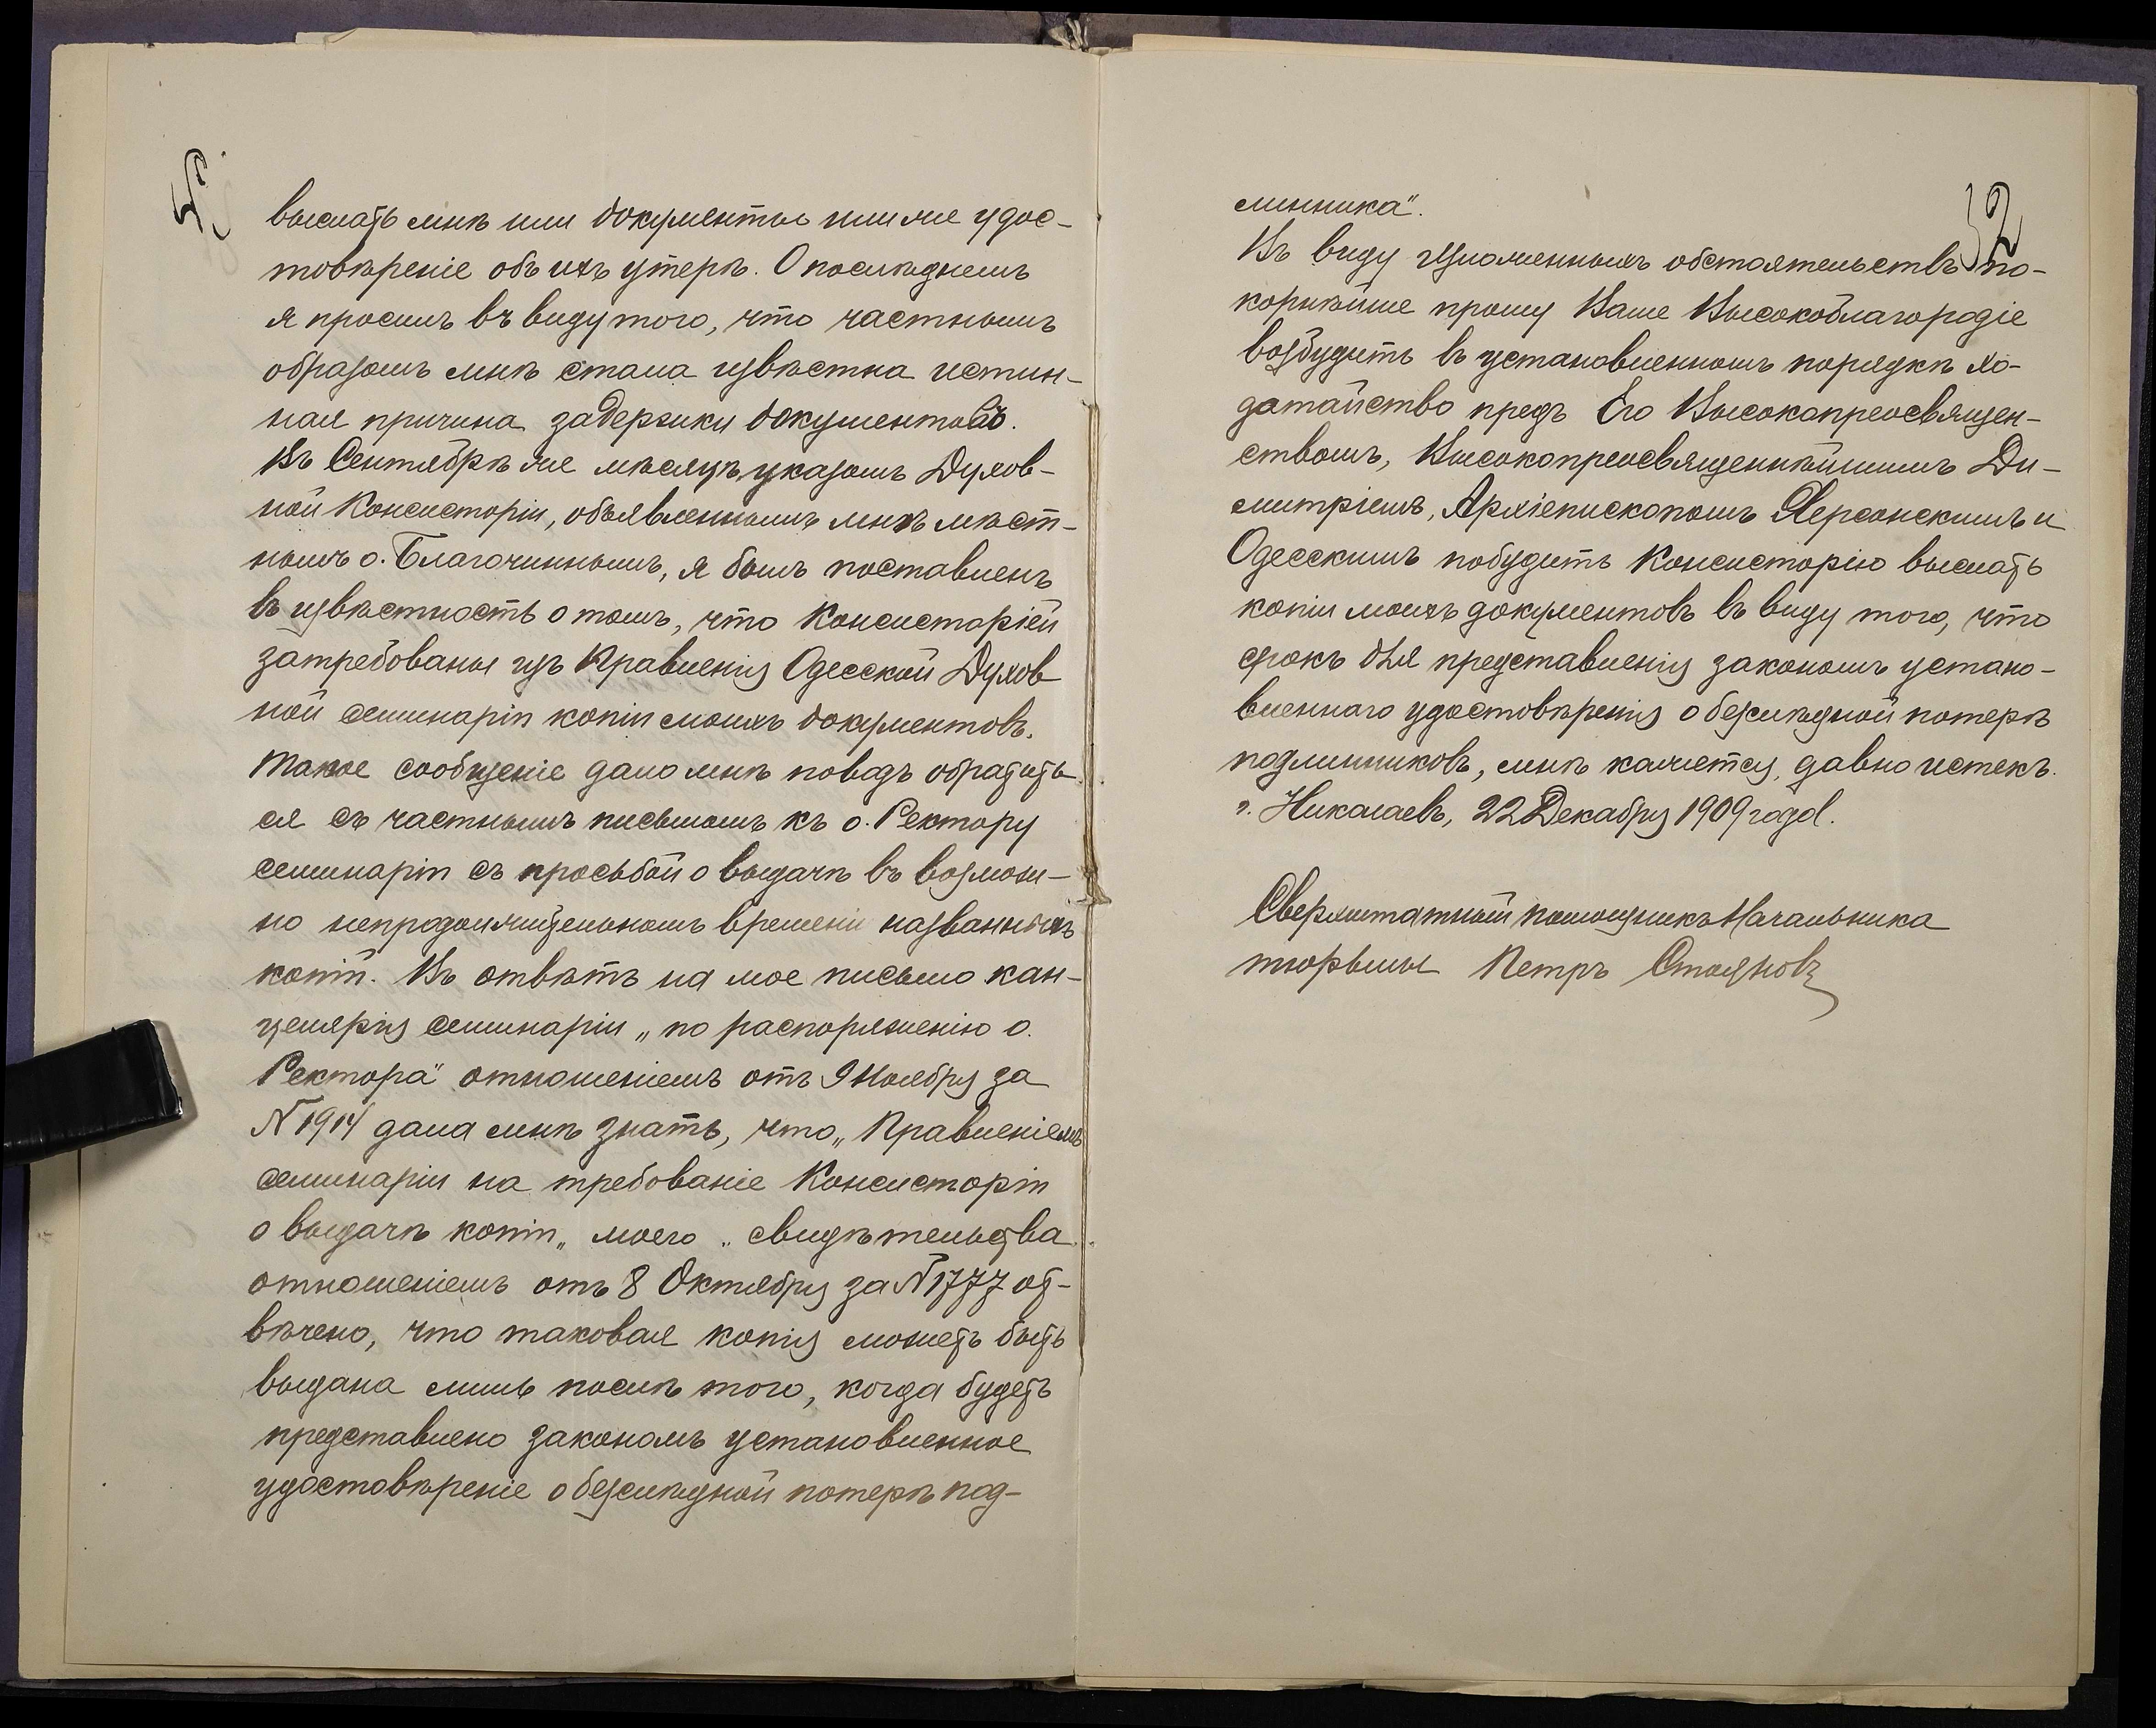 выслать мнѣ или документы или же удос-
товѣреніе объ ихъ утерѣ. О послѣднемъ
я просилъ въ виду того, что частнымъ
образомъ мнѣ стала извѣстна истин-
ная причина задержки документовъ.
Въ Сентябрѣ же мѣсяцѣ указомъ Духов-
ной Консисторіи, объявленнымъ мнѣ мѣст-
нымъ о. Благочиннымъ, я былъ поставленъ
въ извѣстность о томъ, что Консисторіей
затребованы изъ Правленія Одесской Духов-
ной семинаріи копіи моихъ документовъ.
Такое сообщеніе дало мнѣ поводъ обратить-
ся съ частнымъ письмомъ къ о. Ректору
семинаріи съ просьбой о выдачѣ въ возмож-
но непродолжительномъ времени названныхъ
копій. Въ отвѣтъ на мое письмо кан-
целярія семинаріи „по распоряженію о.
Ректора" отношеніемъ отъ 9 Ноября за
№ 1914 дала мнѣ знать, что „Правленіемъ
семинаріи на требованіе Консисторіи
о выдачѣ копіи„ моего „свидѣтельства
отношеніемъ отъ 8 Октября за № 1777 от-
вѣчено, что таковая копія можетъ быть
выдана лишь послѣ того, когда будетъ
представлено закономъ установленное
удостовѣреніе о безслѣдной потерѣ под-
32
линника".
Въ виду изложенныхъ обстоятельствъ по-
корнѣйше прошу Ваше Высокоблагородіе
возбудить въ установленномъ порядкѣ хо-
датайство предъ Его Высокопреосвящен-
ствомъ, Высокопреосвященнѣйшимъ Ди-
митріемъ, Архіепископомъ Херсонскимъ и
Одесскимъ побудить Консисторію выслать
копіи моихъ документовъ въ виду того, что
срокъ для представленія закономъ устано-
вленнаго удостовѣренія о безслѣдной потерѣ
подлинниковъ, мнѣ кажется, давно истекъ.
г. Николаевъ, 22 Декабря 1909 года.
Сверхштатный помощникъ Начальника
тюрьмы Петръ Стояновъ